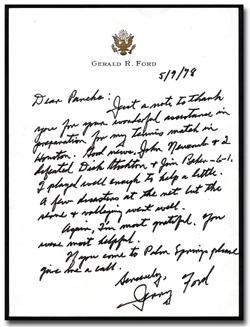 GERALD R. FORD
5/9/78
Dear Pancho:
Just a note to thank
you for your wonderful assistance in
preparation for my tennis match in
Houston. Good news, John Newcombe & I
defeated Dick Stockton & Jim Baker - 6-1.
I played well enough to help a little.
A few disasters at the net but the
& volleying went well.
Again, I'm most grateful. You
were most helpful.
If you come to Palm Springs please
give me a call.
Sincerely,
Jerry Ford